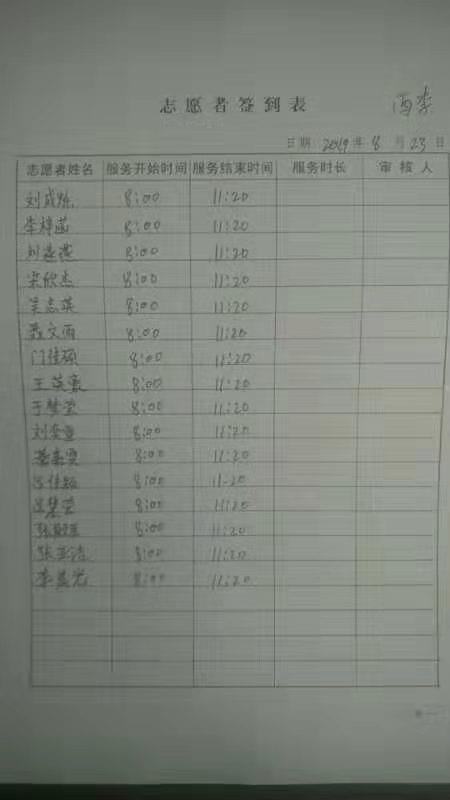 志愿者签到表
西李
日期 2019 年 8 月 23 日
志愿者姓名 服务开始时间 服务结束时间 服务时长 审核人
刘成烁 8:00 11:20
李梓菡 8:00 11:20
刘孟燕 8:00 11:20
宋欣杰 8:00 11:20
吴志英 8:00 11:20
聂文雨 8:00 11:20
门佳硕 8:00 11:20
王英豪 8:00 11:20
于梦莹 8:00 11:20
刘奕童 8:00 11:20
8:00 11:20
吕佳颖 8:00 11:20
吕慧莹 8:00 11:20
8:00 11:20
张亚洁 8:00 11:20
李益光 8:00 11:20